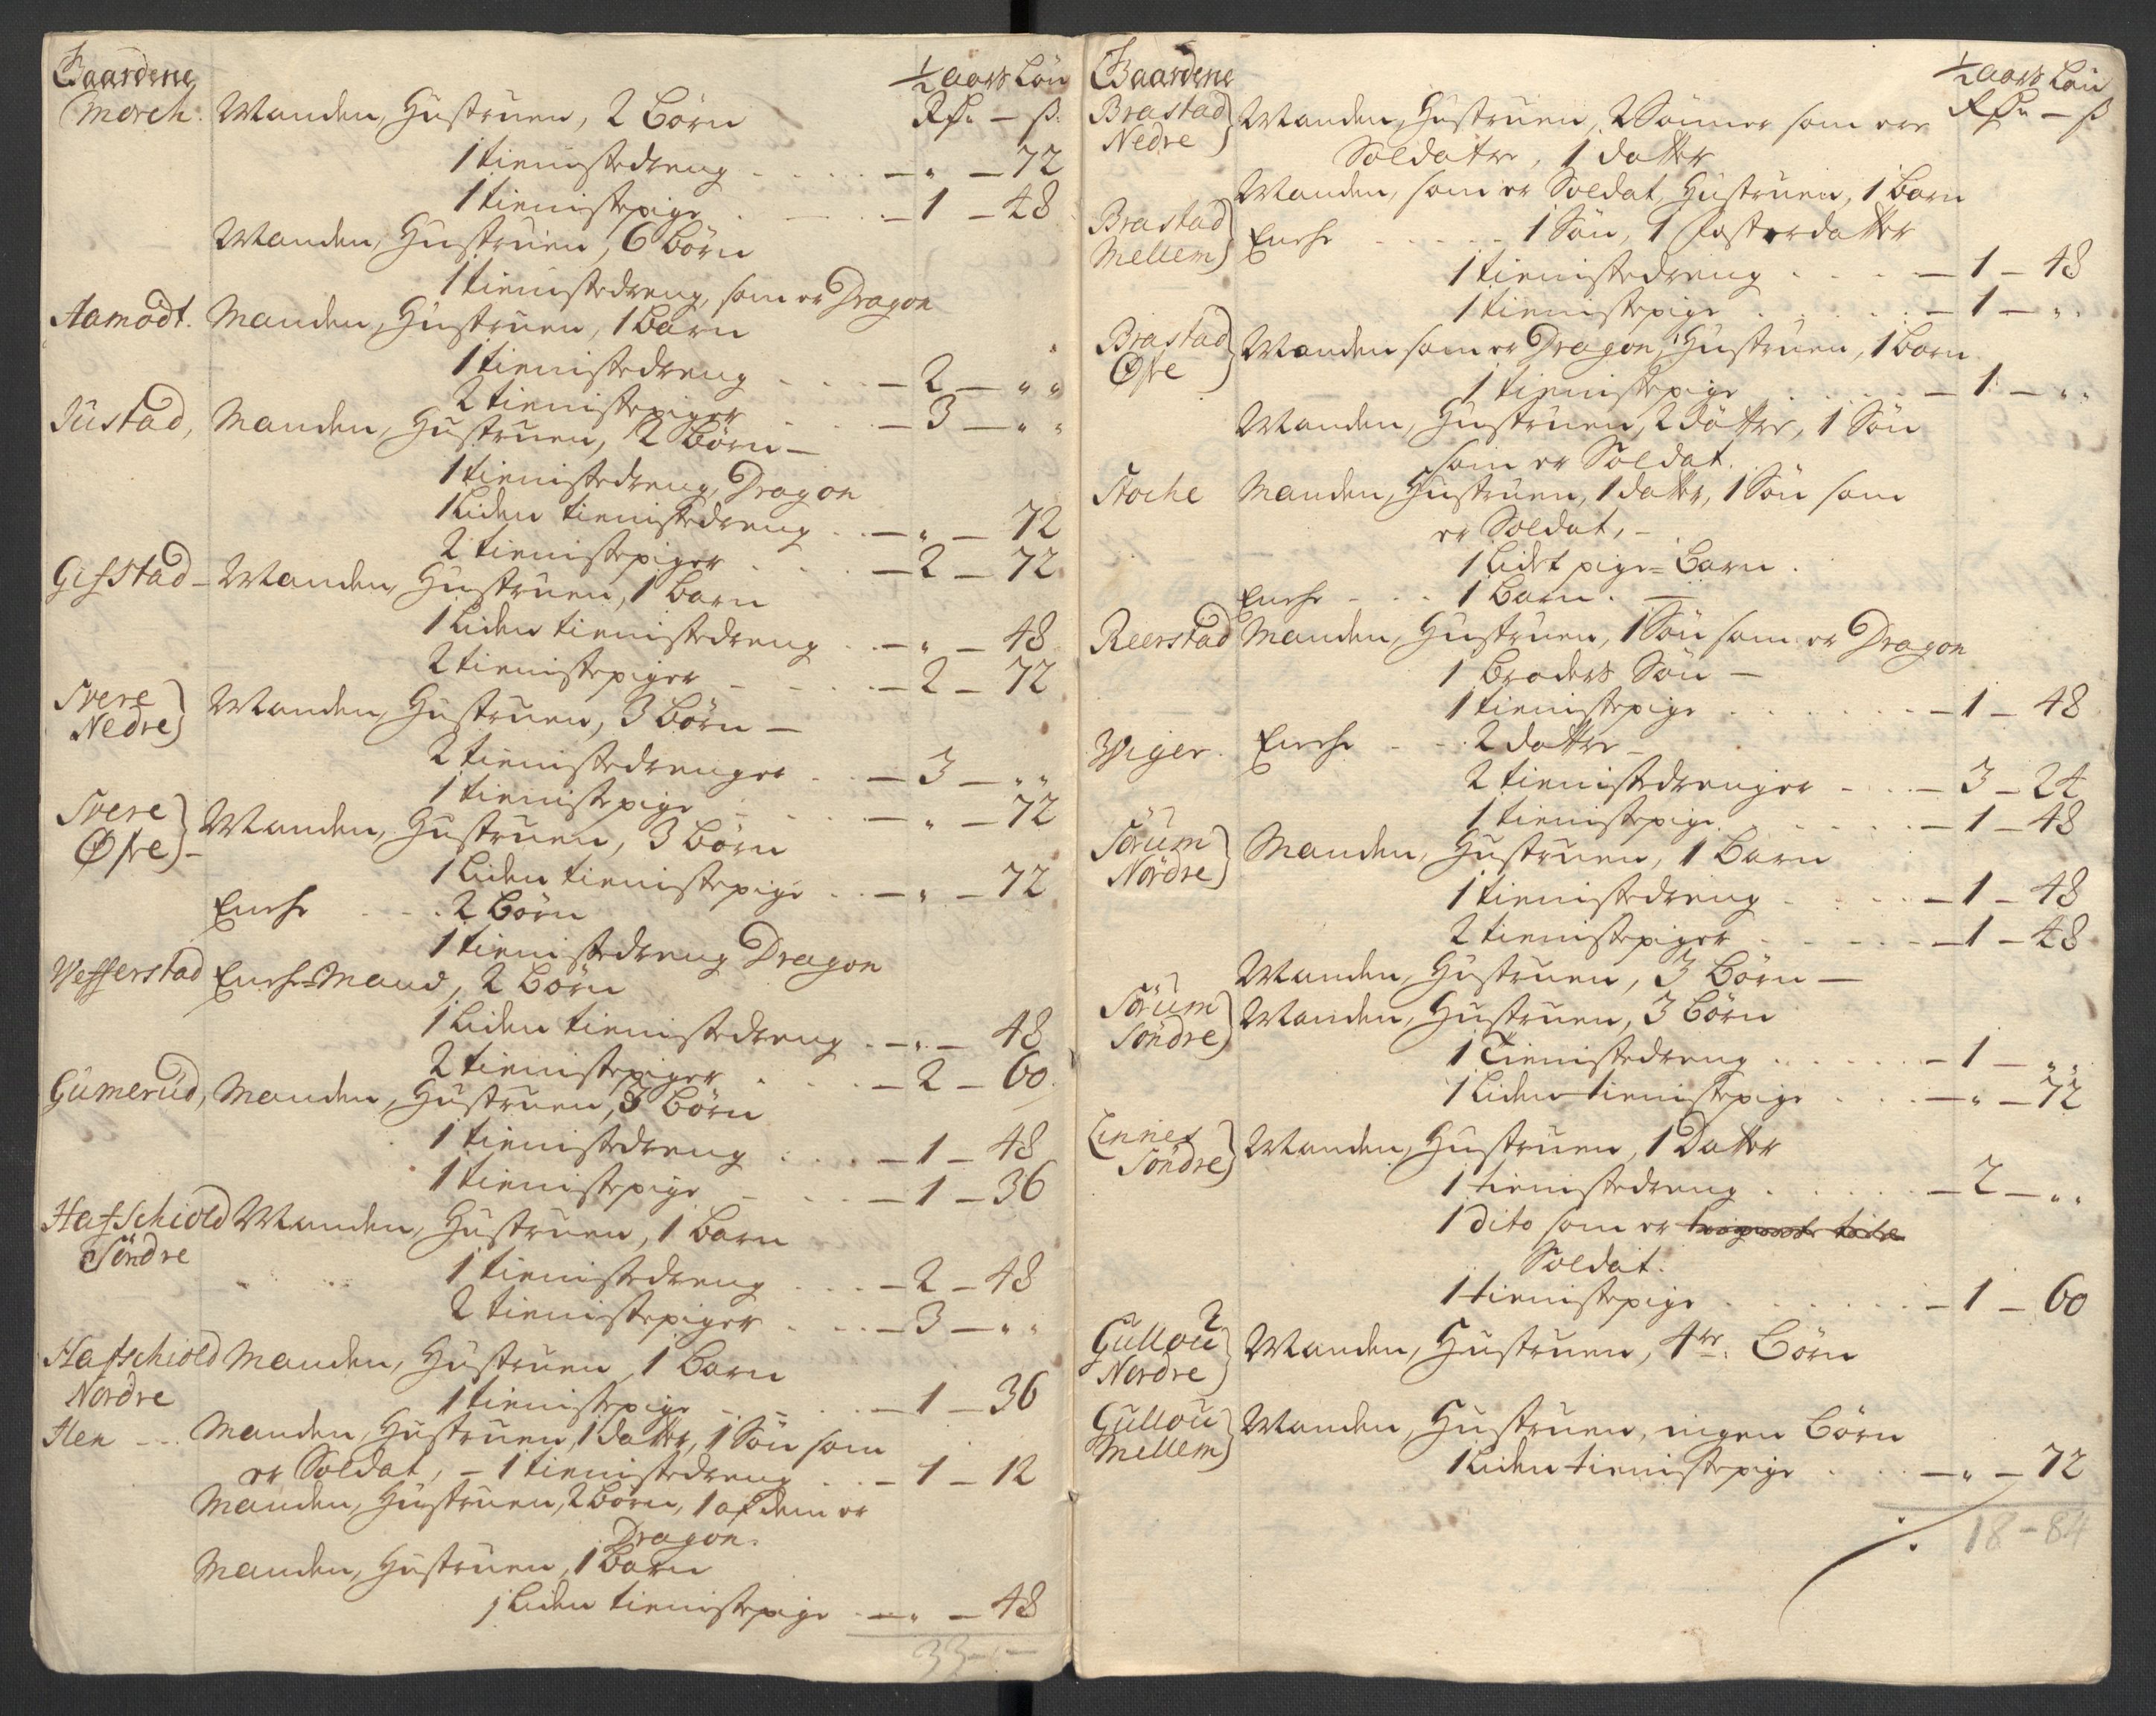 Gaardene
½ aars Løn
Rdr. — ß.
Morck. Manden, Hustruen, 2 børn
1 tienistedreng - - - - „ - 72
1 tienistepige - - - - 1 - 48
Manden, Hustruen, 6 børn
1 tienistedreng, som er Dragon
Aamodt. Manden, Hustruen, 1 barn
1 tienistedreng - - - - 2 - „ „
2 tienistepiger - - - - 3 - „ „
Justad, Manden, Hustruen, 2 børn -
1 tienistedreng Dragon
1 liden tienistedreng - - „ - 72
2 tienistepiger - - - - 2 - 72
Gisstad - Manden Hustruen, 1 barn
1 liden tienistedreng - - „ - 48
2 tienistepiger - - - - 2 - 72
Svere Nedre) Manden, Hustruen, 3 børn -
2 tienistedrenger - - 3 - „ „
1 tienistepige - - - - „ - 72
Svere Øfre) - Manden, Hustruen, 3 børn
1 liden tienistepige - - „ - 72
Enche - - - 2 børn
1 tienistedreng Dragon
Vefferstad Enche-Mand, 2 børn
1 liden tienistedreng - - „ - 48
2 tienistepiger - - - - 2 - 60
Gumerud, Manden, Hustruen, 3 børn
1 tienistedreng - - - - 1 - 48
1 tienistepige - - - - 1 - 36
Hafschiold Søndre Manden, Hustruen, 1 barn
1 tienistedreng - - - - 2 - 48
2 tienistepiger - - - - 3 - „ „
Hafschiold Nordre Manden, Hustruen, 1 barn
1 tienistepige - - - - 1 - 36
Hen - - Manden, Hustruen, 1 datter, 1 Søn som
er Soldat, - 1 tienistedreng - - 1 - 12
Manden, Hustruen, 2 børn, 1 af dem er
Dragon.
Manden, Hustruen, 1 barn
1 liden tienistepige - - „ - 48
33 - „ -
Gaardene
½ aars Løn
Rdr. — ß
Brastad Nedre) Manden, Hustruen, 2 Sønner som ere
Soldater, 1 datter
Manden, som er Soldat, Hustruen, 1 barn
Brastad Mellem) Enche - - - - 1 Søn, 1 fosterdatter
1 tienistedreng - - - - 1 - 48
1 tienistepige - - - - 1 - „ „
Brastad Øfre) Manden som er Dragon, Hustruen, 1 barn
1 tienistepige - - - - 1 - „ „
Manden, Hustruen, 2 døttre, 1 Søn
som er Soldat.
Stocke Manden, Hustruen, 1 datter, 1 Søn som
er Soldat, -
1 lidet pige-barn.
Enche - - - 1 barn. -
Reerstad Manden, Hustruen, 1 Søn som er Dragon
1 broders Søn -
1 tienistepige - - - - 1 - 48
Viger. Enche - - 2 døttre -
2 tienistedrenger - - - 3 - 24
1 tienistepige - - - - 1 - 48
Sørum Nordre) Manden, Hustruen, 1 barn
1 tienistedreng - - - - 1 - 48
2 tienistepiger - - - - 1 - 48
Manden, Hustruen, 3 børn -
Sørum Søndre) Manden, Hustruen, 3 børn
1 Tienistedreng - - - - 1 - „ „
1 liden tienistepige - - - „ - 72
Linnes Søndre) Manden, Hustruen, 1 Datter
1 tienistedreng - - - - 2 - „ „
1 dito som er
Soldat.
1 tienistepige - - - - 1 - 60
Gullou Nordre) Manden, Hustruen, 4re. børn
Gullou Mellem) Manden, Hustruen, ingen børn
1 liden tienistepige - - - „ - 72
18 - 84